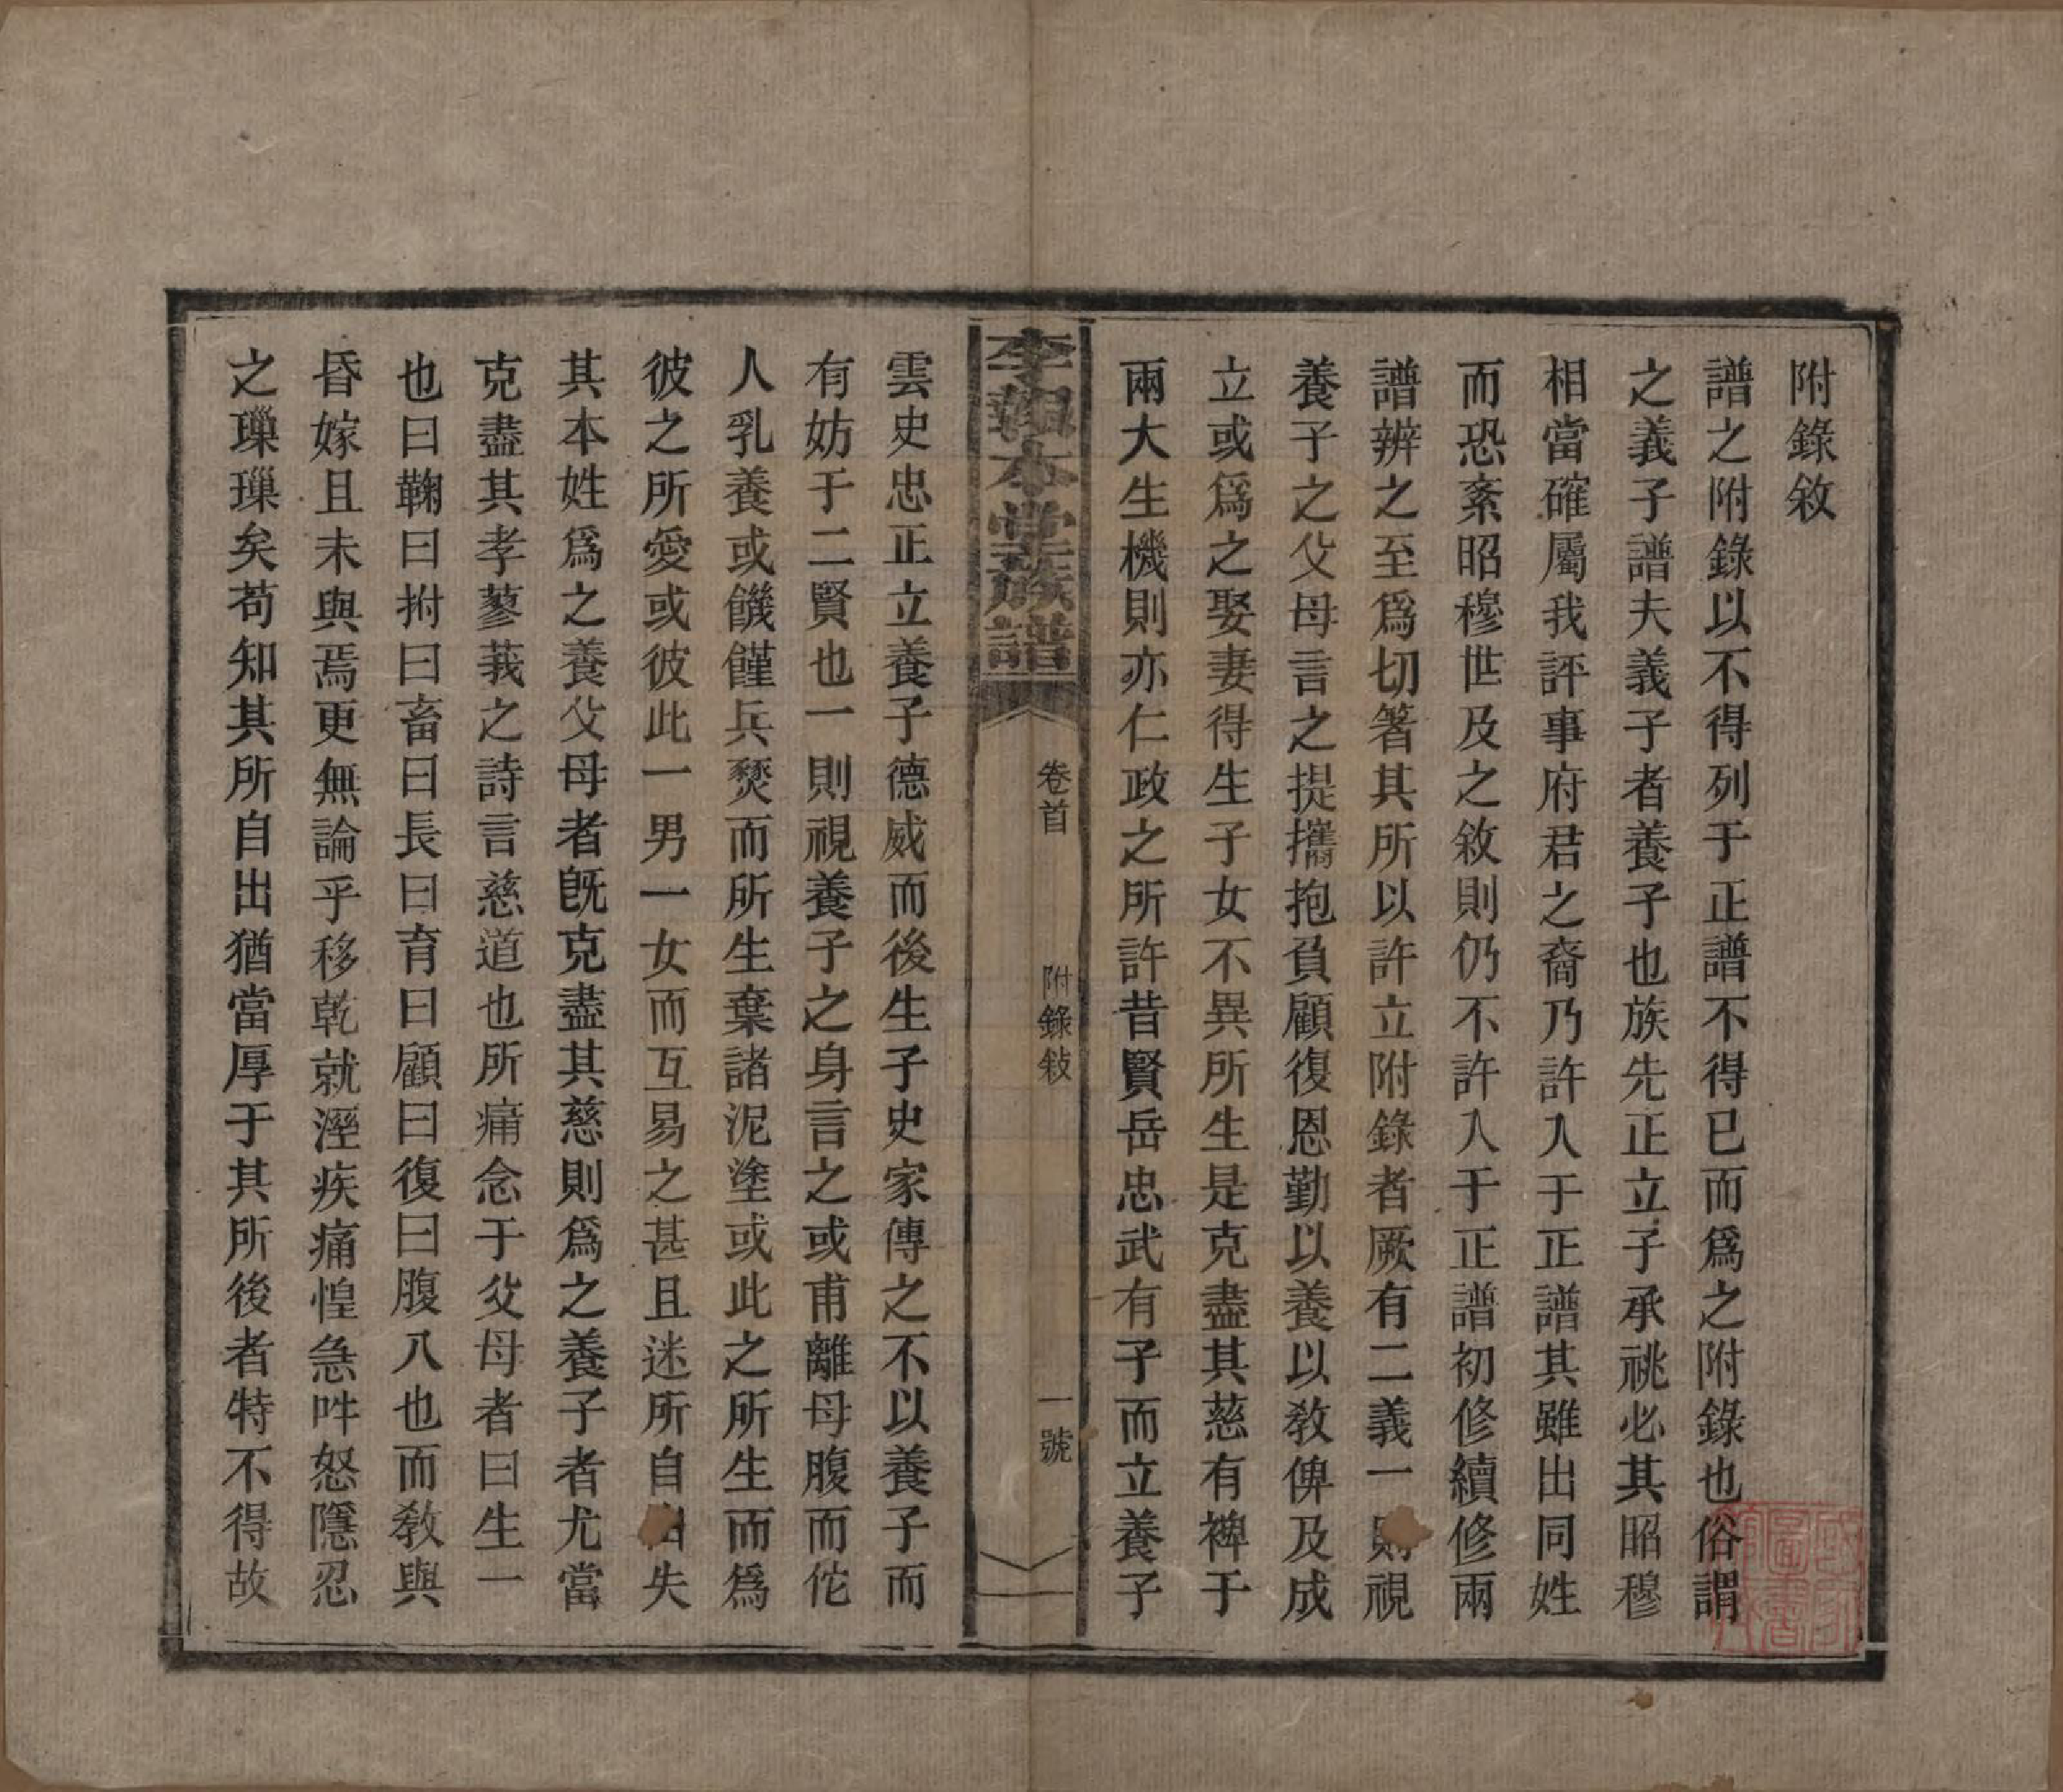 附錄敘
譜之附錄以不得列于正譜不得已而爲之附錄也俗謂
之義子譜夫義子者養子也族先正立子承祧必其昭穆
相當確屬我評事府君之裔乃許入于正譜其雖出同姓
而恐紊昭穆世及之敘則仍不許入于正譜初修續修兩
譜辨之至爲切箸其所以許立附錄者厥有二義一則視
養子之父母言之提攜抱負顧復恩勤以養以敎俾及成
立或爲之娶妻得生子女不異所生是克盡其慈有裨于
兩大生機則亦仁政之所許昔賢岳忠武有子而立養子
李報本堂族譜
卷首
附錄敍
一號
雲史忠正立養子德威而後生子史家傳之不以養子而
有妨于二賢也一則視養子之身言之或甫離母腹而佗
人乳養或饑饉兵燹而所生棄諸泥塗或此之所生而爲
彼之所愛或彼此一男一女而互易之甚且迷所自出失
其本姓爲之養父母者旣克盡其慈則爲之養子者尤當
克盡其孝蓼莪之詩言慈道也所痛念于父母者曰生一
也曰鞠曰拊曰畜曰長曰育曰顧曰復曰腹八也而敎與
昏嫁且未與焉更無論乎移乾就溼疾痛惶急吽怒隱忍
之璅璅矣苟知其所自出猶當厚于其所後者特不得故